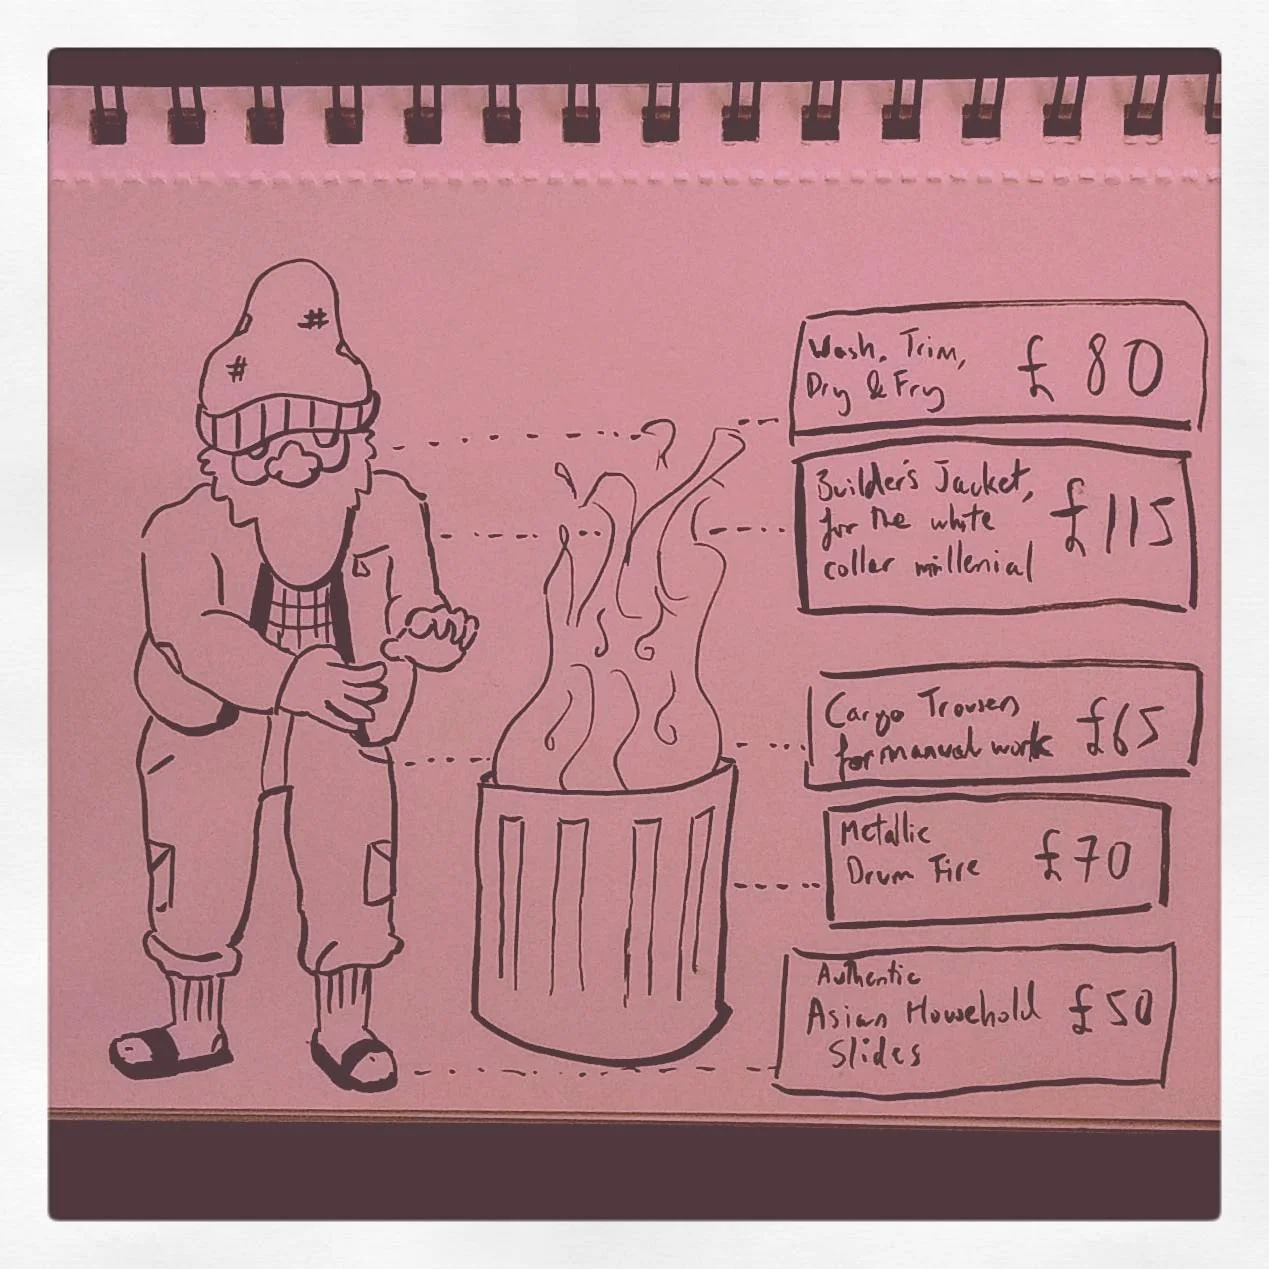 Wash, Trim,
Dry & Fry £80
Builder's Jacket,
for the white
collar millenial £115
Cargo Trousers
for manual work £65
Metallic
Drum Fire £70
Authentic
Asian Household
Slides £50